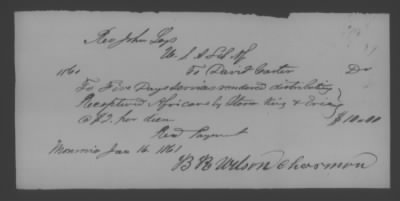 Rev John Seys
U. S. A. f L. R. Af
To David Carter Dr
1861
To Five Days Services rendered distributing
Recaptured Africans by Storm King & Erie
@ $2. per diem $10.00
Recd Payment
Monrovia Jan 16. 1861
B B Wilson Chairman